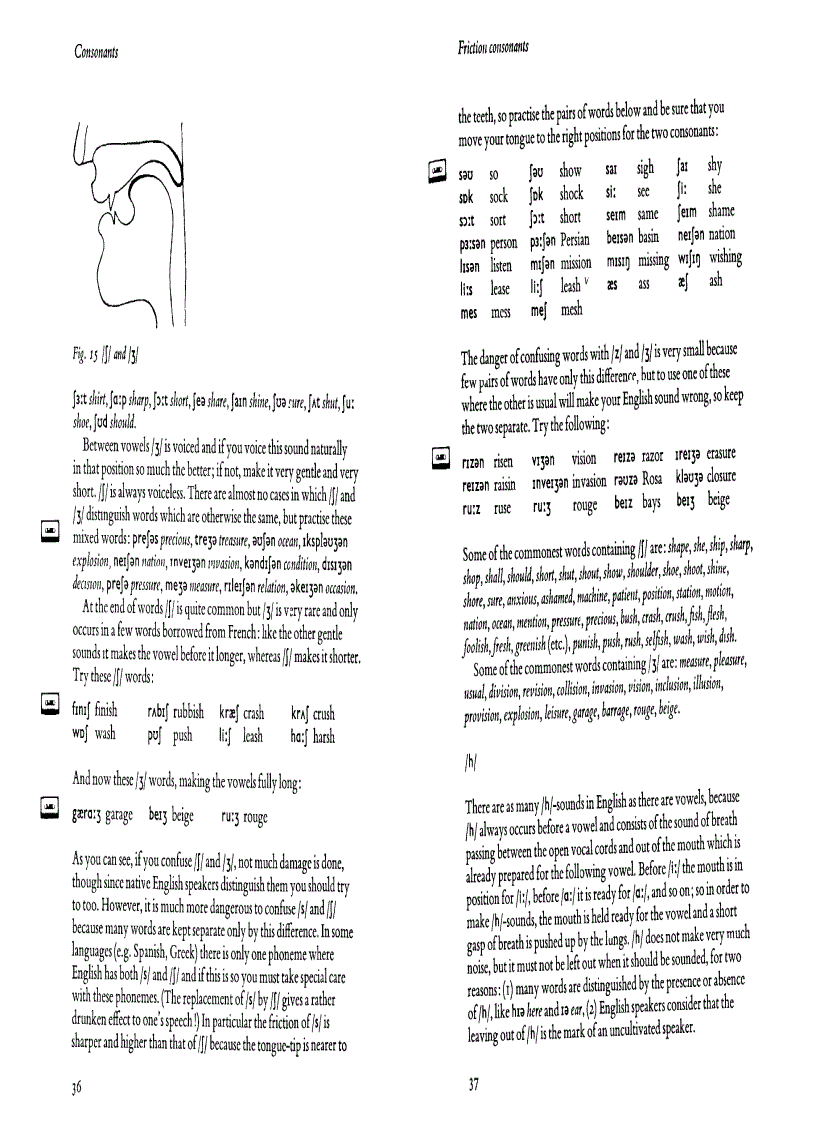 Consonants
Fig. 15 /ʃ/ and /ʒ/
ʃɜːt shirt, ʃɑːp sharp, ʃɔːt short, ʃeə share, ʃaɪn shine, ʃʊə sure, ʃʌt shut, ʃuː
shoe, ʃʊd should.
Between vowels /ʒ/ is voiced and if you voice this sound naturally
in that position so much the better; if not, make it very gentle and very
short. /ʃ/ is always voiceless. There are almost no cases in which /ʃ/ and
/ʒ/ distinguish words which are otherwise the same, but practise these
mixed words: preʃəs precious, treʒə treasure, əʊʃən ocean, ɪkspləʊʒən
explosion, neɪʃən nation, ɪnveɪʒən invasion, kəndɪʃən condition, dɪsɪʒən
decision, preʃə pressure, meʒə measure, rɪleɪʃən relation, əkeɪʒən occasion.
At the end of words /ʃ/ is quite common but /ʒ/ is very rare and only
occurs in a few words borrowed from French: like the other gentle
sounds it makes the vowel before it longer, whereas /ʃ/ makes it shorter.
Try these /ʃ/ words:
fɪnɪʃ finish rʌbɪʃ rubbish kræʃ crash krʌʃ crush
wɒʃ wash pʊʃ push liːʃ leash hɑːʃ harsh
And now these /ʒ/ words, making the vowels fully long:
gærɑːʒ garage beɪʒ beige ruːʒ rouge
As you can see, if you confuse /ʃ/ and /ʒ/, not much damage is done,
though since native English speakers distinguish them you should try
to too. However, it is much more dangerous to confuse /s/ and /ʃ/
because many words are kept separate only by this difference. In some
languages (e.g. Spanish, Greek) there is only one phoneme where
English has both /s/ and /ʃ/ and if this is so you must take special care
with these phonemes. (The replacement of /s/ by /ʃ/ gives a rather
drunken effect to one's speech!) In particular the friction of /s/ is
sharper and higher than that of /ʃ/ because the tongue-tip is nearer to
36
Friction consonants
the teeth, so practise the pairs of words below and be sure that you
move your tongue to the right positions for the two consonants:
səʊ so ʃəʊ show saɪ sigh ʃaɪ shy
sɒk sock ʃɒk shock siː see ʃiː she
sɔːt sort ʃɔːt short seɪm same ʃeɪm shame
pɜːsən person pɜːʃən Persian beɪsən basin neɪʃən nation
lɪsən listen mɪʃən mission mɪsɪŋ missing wɪʃɪŋ wishing
liːs lease liːʃ leash v æs ass æʃ ash
mes mess meʃ mesh
The danger of confusing words with /z/ and /ʒ/ is very small because
few pairs of words have only this difference, but to use one of these
where the other is usual will make your English sound wrong, so keep
the two separate. Try the following:
rɪzən risen vɪʒən vision reɪzə razor ɪreɪʒə erasure
reɪzən raisin ɪnveɪʒən invasion rəʊzə Rosa kləʊʒə closure
ruːz ruse ruːʒ rouge beɪz bays beɪʒ beige
Some of the commonest words containing /ʃ/ are: shape, she, ship, sharp,
shop, shall, should, short, shut, shout, show, shoulder, shoe, shoot, shine,
shore, sure, anxious, ashamed, machine, patient, position, station, motion,
nation, ocean, mention, pressure, precious, bush, crash, crush, fish, flesh,
foolish, fresh, greenish (etc.), punish, push, rush, selfish, wash, wish, dish.
Some of the commonest words containing /ʒ/ are: measure, pleasure,
usual, division, revision, collision, invasion, vision, inclusion, illusion,
provision, explosion, leisure, garage, barrage, rouge, beige.
/h/
There are as many /h/-sounds in English as there are vowels, because
/h/ always occurs before a vowel and consists of the sound of breath
passing between the open vocal cords and out of the mouth which is
already prepared for the following vowel. Before /iː/ the mouth is in
position for /iː/, before /ɑː/ it is ready for /ɑː/, and so on; so in order to
make /h/-sounds, the mouth is held ready for the vowel and a short
gasp of breath is pushed up by the lungs. /h/ does not make very much
noise, but it must not be left out when it should be sounded, for two
reasons: (1) many words are distinguished by the presence or absence
of /h/, like hɪə here and ɪə ear, (2) English speakers consider that the
leaving out of /h/ is the mark of an uncultivated speaker.
37